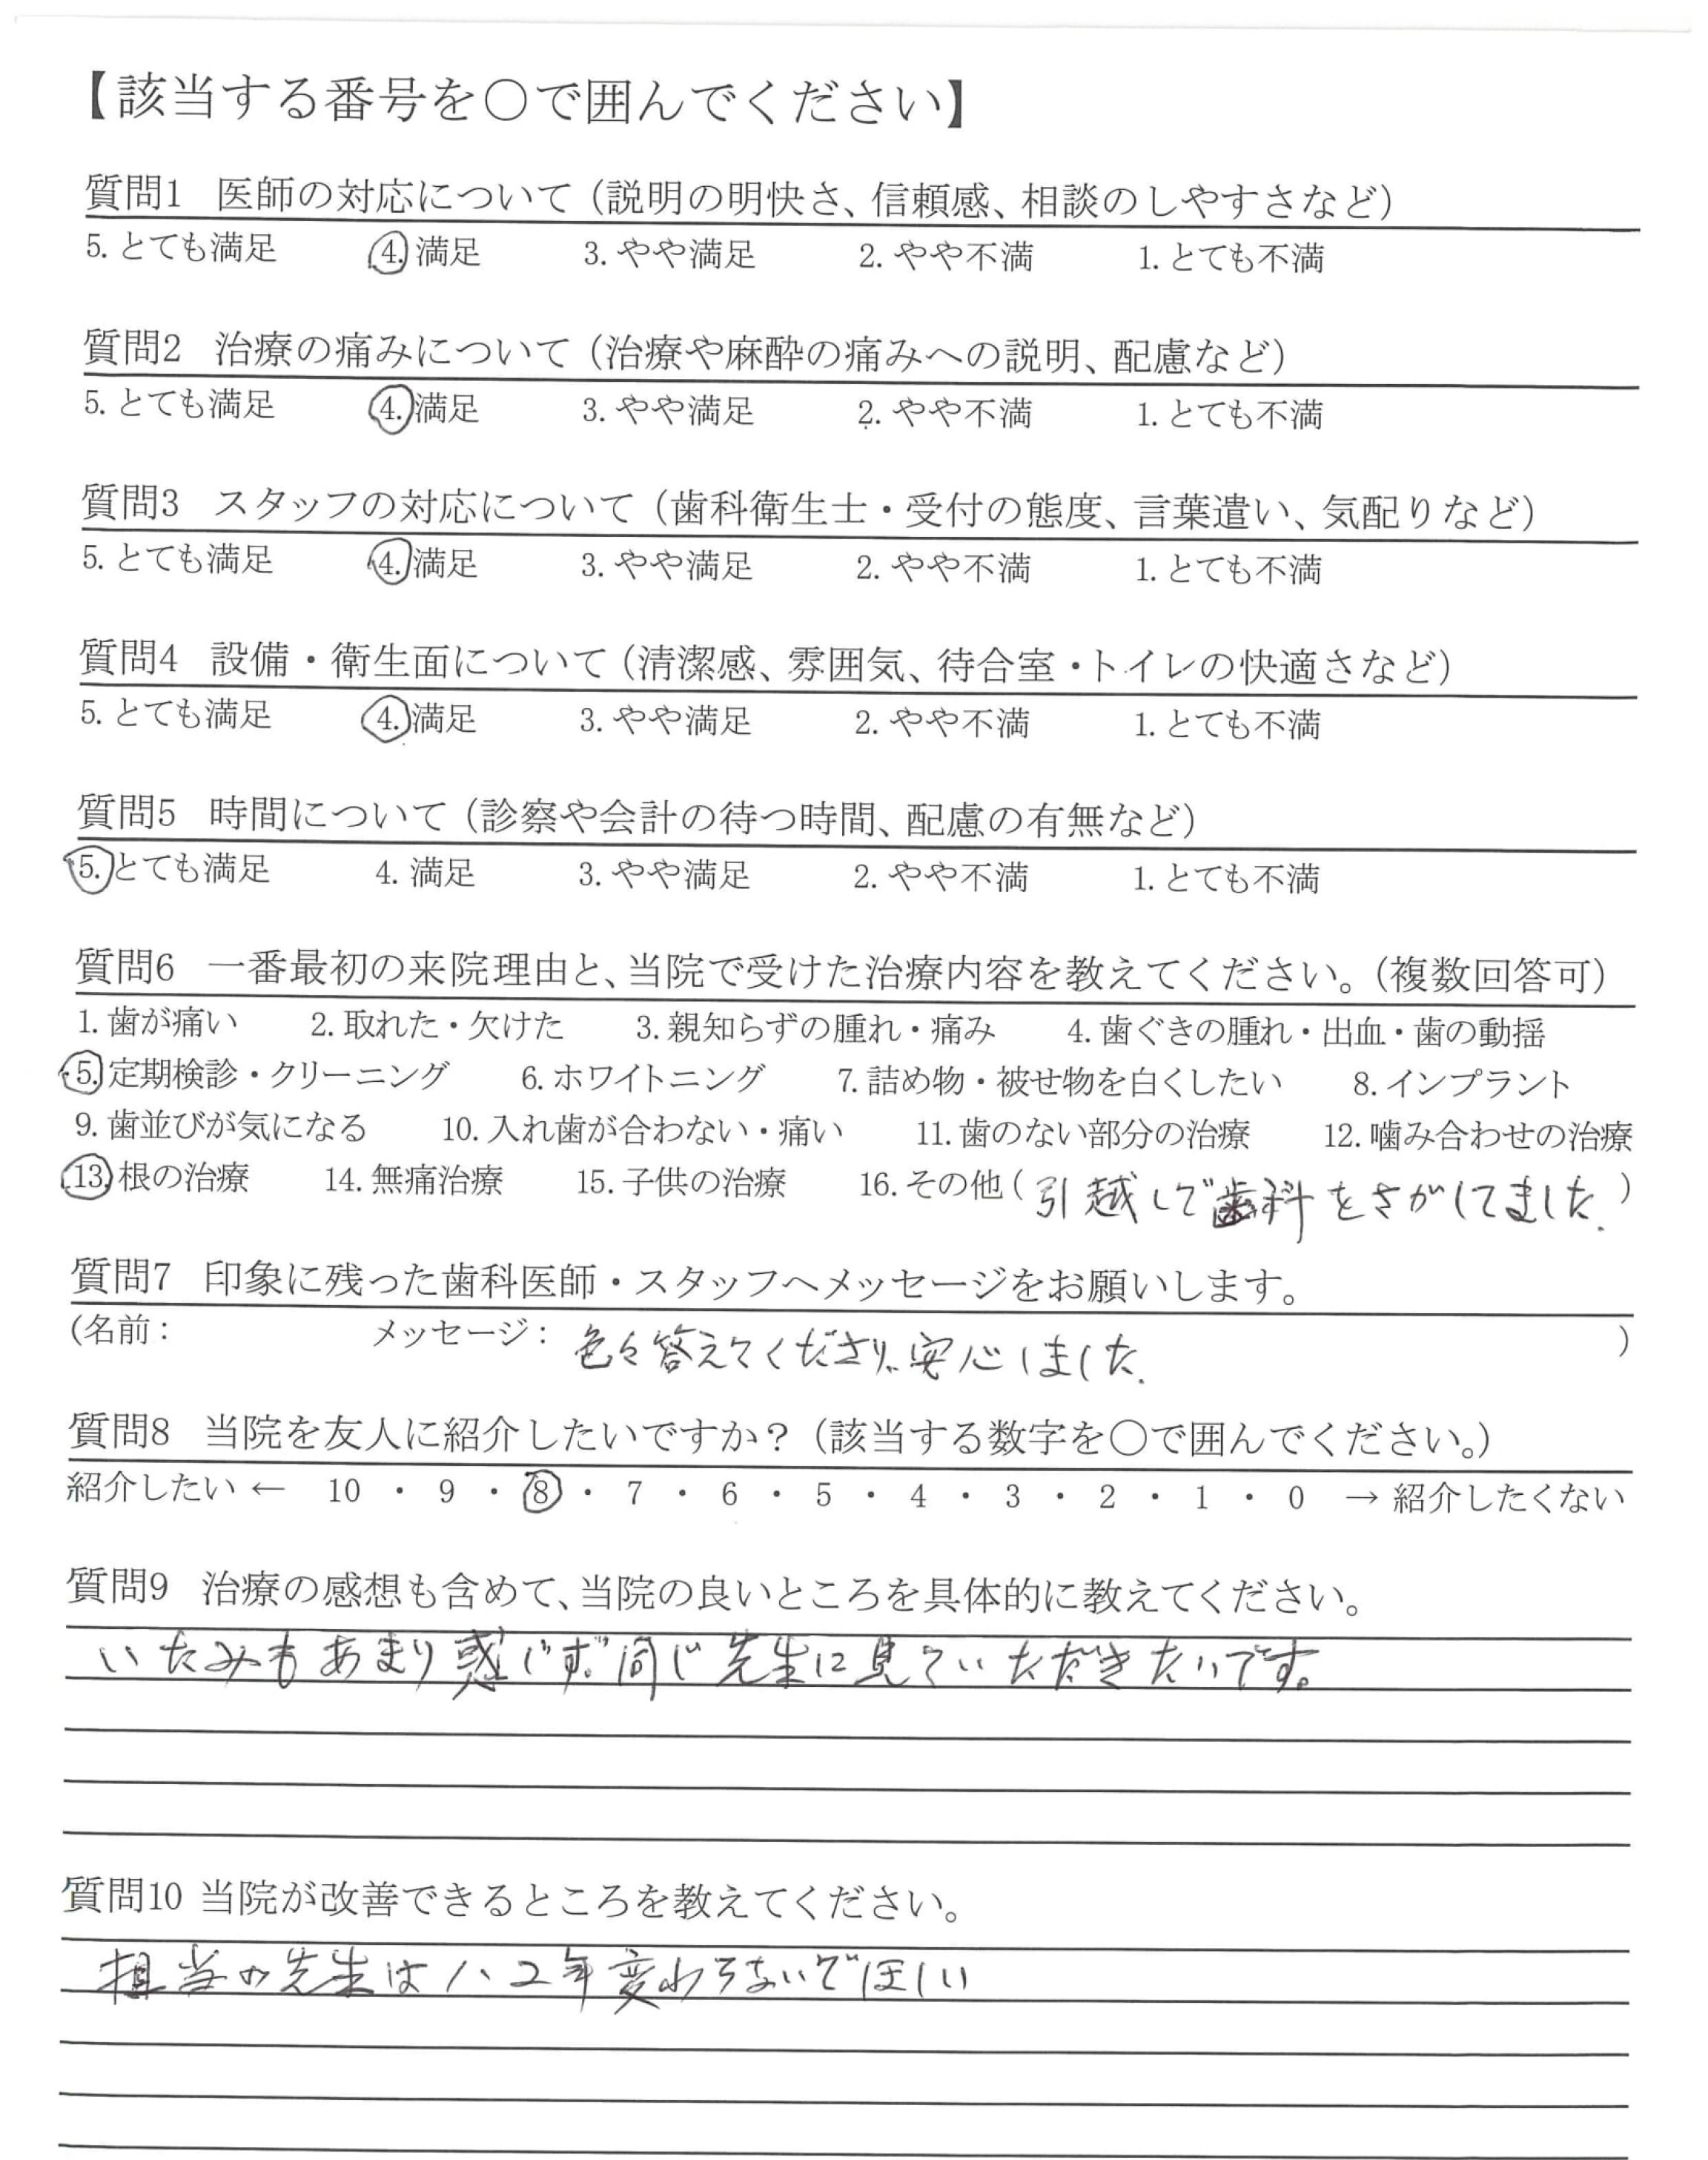 【該当する番号を○で囲んでください】
質問1 医師の対応について（説明の明快さ、信頼感、相談のしやすさなど）
5. とても満足 4. 満足 3. やや満足 2. やや不満 1. とても不満
質問2 治療の痛みについて（治療や麻酔の痛みへの説明、配慮など）
5. とても満足 4. 満足 3. やや満足 2. やや不満 1. とても不満
質問3 スタッフの対応について（歯科衛生士・受付の態度、言葉遣い、気配りなど）
5. とても満足 4. 満足 3. やや満足 2. やや不満 1. とても不満
質問4 設備・衛生面について（清潔感、雰囲気、待合室・トイレの快適さなど）
5. とても満足 4. 満足 3. やや満足 2. やや不満 1. とても不満
質問5 時間について（診察や会計の待つ時間、配慮の有無など）
5. とても満足 4. 満足 3. やや満足 2. やや不満 1. とても不満
質問6 一番最初の来院理由と、当院で受けた治療内容を教えてください。（複数回答可）
1. 歯が痛い 2. 取れた・欠けた 3. 親知らずの腫れ・痛み 4. 歯ぐきの腫れ・出血・歯の動揺
5. 定期検診・クリーニング 6. ホワイトニング 7. 詰め物・被せ物を白くしたい 8. インプラント
9. 歯並びが気になる 10. 入れ歯が合わない・痛い 11. 歯のない部分の治療 12. 噛み合わせの治療
13. 根の治療 14. 無痛治療 15. 子供の治療 16. その他（引越しで歯科をさがしてました.）
質問7 印象に残った歯科医師・スタッフへメッセージをお願いします。
（名前： メッセージ：色々答えてくださり、安心しました.）
質問8 当院を友人に紹介したいですか？（該当する数字を○で囲んでください。）
紹介したい ← 10 ・ 9 ・ 8 ・ 7 ・ 6 ・ 5 ・ 4 ・ 3 ・ 2 ・ 1 ・ 0 → 紹介したくない
質問9 治療の感想も含めて、当院の良いところを具体的に教えてください。
いたみもあまり感じず、同じ先生に見ていただきたいです。
質問10 当院が改善できるところを教えてください。
担当の先生は1、2年変わらないでほしい